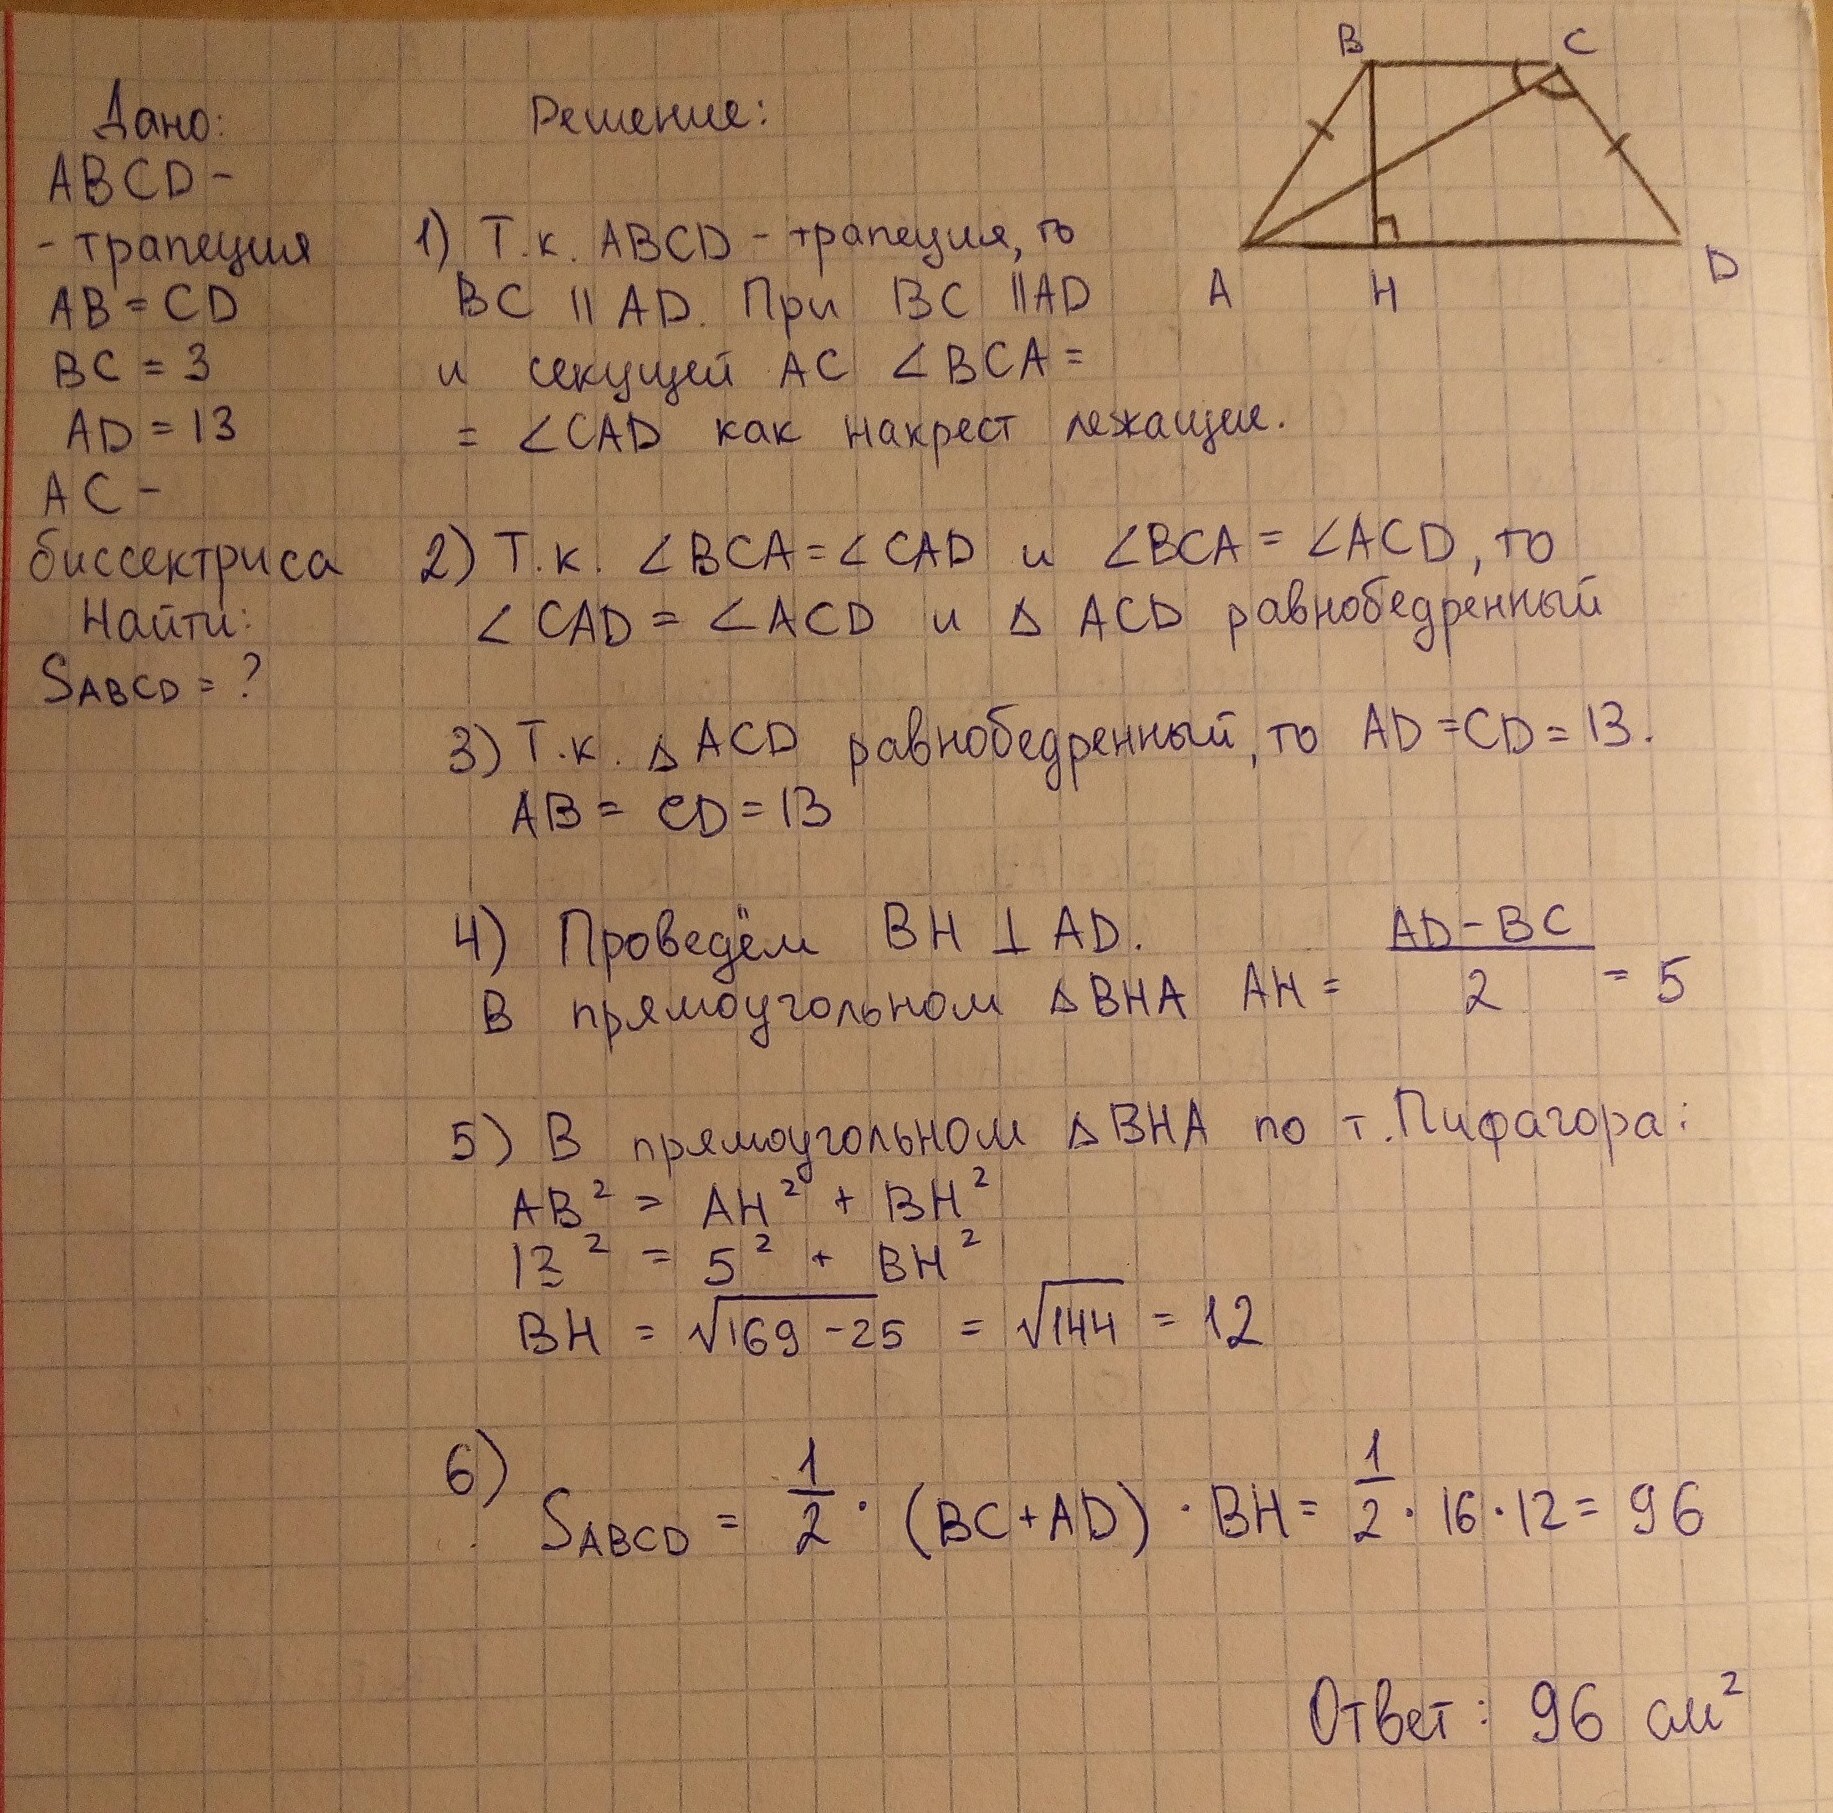 B C
Дано:
ABCD -
- трапеция
AB = CD
BC = 3
AD = 13
AC -
биссектриса
Найти:
SABCD = ?
Решение:
A H D
1) Т.к. ABCD - трапеция, то
BC || AD. При BC || AD
и секущей AC ∠BCA =
= ∠CAD как накрест лежащие.
2) Т.к. ∠BCA = ∠CAD и ∠BCA = ∠ACD, то
∠CAD = ∠ACD и △ ACD равнобедренный
3) Т.к. △ ACD равнобедренный, то AD = CD = 13.
AB = CD = 13
4) Проведём BH ⊥ AD.
В прямоугольном △BHA AH = (AD - BC)/2 = 5
5) В прямоугольном △BHA по т. Пифагора:
AB² = AH² + BH²
13² = 5² + BH²
BH = √169 - 25 = √144 = 12
6) SABCD = 1/2 · (BC + AD) · BH = 1/2 · 16 · 12 = 96
Ответ: 96 см²